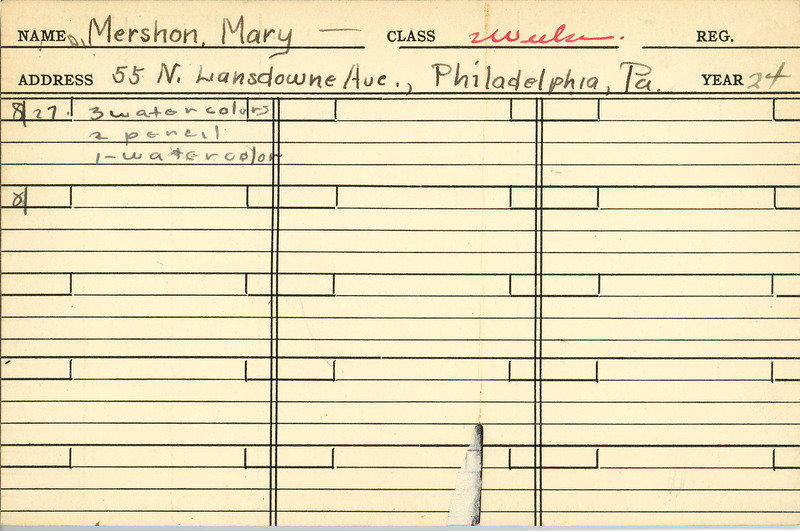 NAME Mershon, Mary — CLASS REG.
ADDRESS 55 N. Lansdowne Ave., Philadelphia, Pa. YEAR 24
8/27. 3 watercolors
2 pencil
1-watercolor
8/